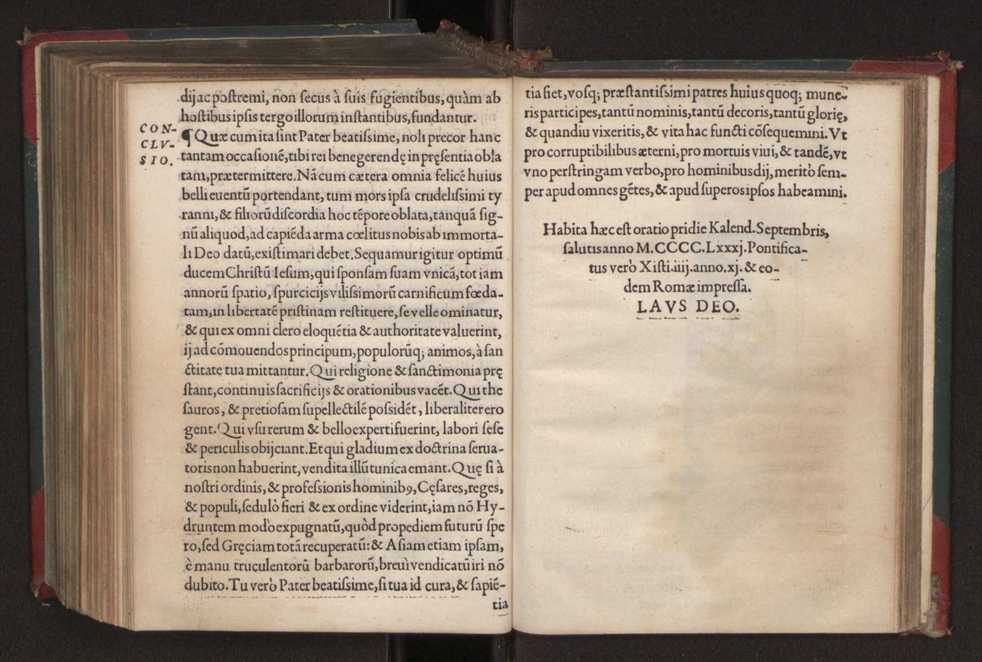 dij ac postremi, non secus à suis fugientibus, quàm ab
hostibus ipsis tergo illorum instantibus, fundantur.
CON-
CLV-
SIO.
¶ Quæ cum ita sint Pater beatissime, noli precor hanc
tantam occasionē, tibi rei bene gerendę in pręsentia obla
tam, prætermittere. Nā cum cætera omnia felicē huius
belli euentū portendant, tum mors ipsa crudelissimi ty
ranni, & filiorū discordia hoc tēpore oblata, tanquā sig-
nū aliquod, ad capiēda arma cœlitus nobis ab immorta-
li Deo datū, existimari debet. Sequamur igitur optimū
ducem Christū Iesum, qui sponsam suam vnicā, tot iam
annorū spatio, spurcicijs vilissimorū carnificum fœda-
tam, in libertatē pristinam restituere, se velle ominatur,
& qui ex omni clero eloquētia & authoritate valuerint,
ij ad cōmouendos principum, populorūq; animos, à san
ctitate tua mittantur. Qui religione & sanctimonia prę
stant, continuis sacrificijs & orationibus vacēt. Qui the
sauros, & pretiosam supellectilē possidēt, liberaliter ero
gent. Qui vsu rerum & bello experti fuerint, labori sese
& periculis obijciant. Et qui gladium ex doctrina serua-
toris non habuerint, vendita illū tunica emant. Quę si à
nostri ordinis, & professionis hominib9, Cęsares, reges,
& populi, sedulò fieri & ex ordine viderint, iam nō Hy-
druntem modò expugnatū, quòd propediem futurū spe
ro, sed Gręciam totā recuperatū: & Asiam etiam ipsam,
è manu truculentorū barbarorū, breuì vendicatū iri nō
dubito. Tu verò Pater beatissime, si tua id cura, & sapiē-
tia
tia fiet, vosq; præstantissimi patres huius quoq; mune-
ris participes, tantū nominis, tantū decoris, tantū glorię,
& quandiu vixeritis, & vita hac functi cōsequemini. Vt
pro corruptibilibus æterni, pro mortuis viui, & tandē, vt
vno perstringam verbo, pro hominibus dij, meritò sem-
per apud omnes gētes, & apud superos ipsos habeamini.
Habita hæc est oratio pridie Kalend. Septembris,
salutis anno M.CCCC.Lxxxj. Pontifica-
tus verò Xisti.iiij.anno.xj. & eo-
dem Romæ impressa.
LAVS DEO.